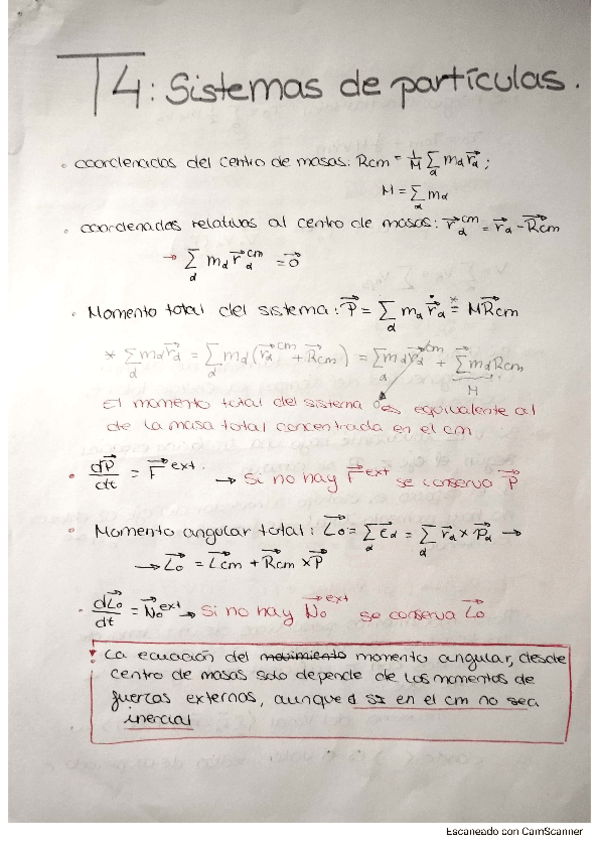 T4: Sistemas de partículas.
• coordenadas del centro de masas: Rcm = 1/M Σ_α m_α r⃗_α ;
M = Σ_α m_α
• coordenadas relativas al centro de masas: r⃗_α^cm = r⃗_α - R⃗cm
→ Σ_α m_α r⃗_α^cm = 0⃗
• Momento total del sistema: P⃗ = Σ_α m_α ṙ⃗_α =* M R⃗cm
* Σ_α m_α r⃗_α = Σ_α m_α (r⃗_α^cm + R⃗cm) = Σ_α m_α r⃗_α^cm + Σ m_α Rcm
0 M
El momento total del sistema es equivalente al
de la masa total concentrada en el cm
• dP⃗/dt = F⃗^ext. → Si no hay F⃗^ext se conserva P⃗
• Momento angular total: L⃗o = Σ_α ℓ⃗_α = Σ_α r⃗_α × p⃗_α →
→ L⃗o = L⃗cm + R⃗cm × P⃗
• dL⃗o/dt = N⃗o^ext → Si no hay N⃗o^ext se conserva L⃗o
! La ecuación del movimiento momento angular, desde
centro de masas solo depende de los momentos de
fuerzas externas, aunque el SI en el cm no sea
inercial
Escaneado con CamScanner